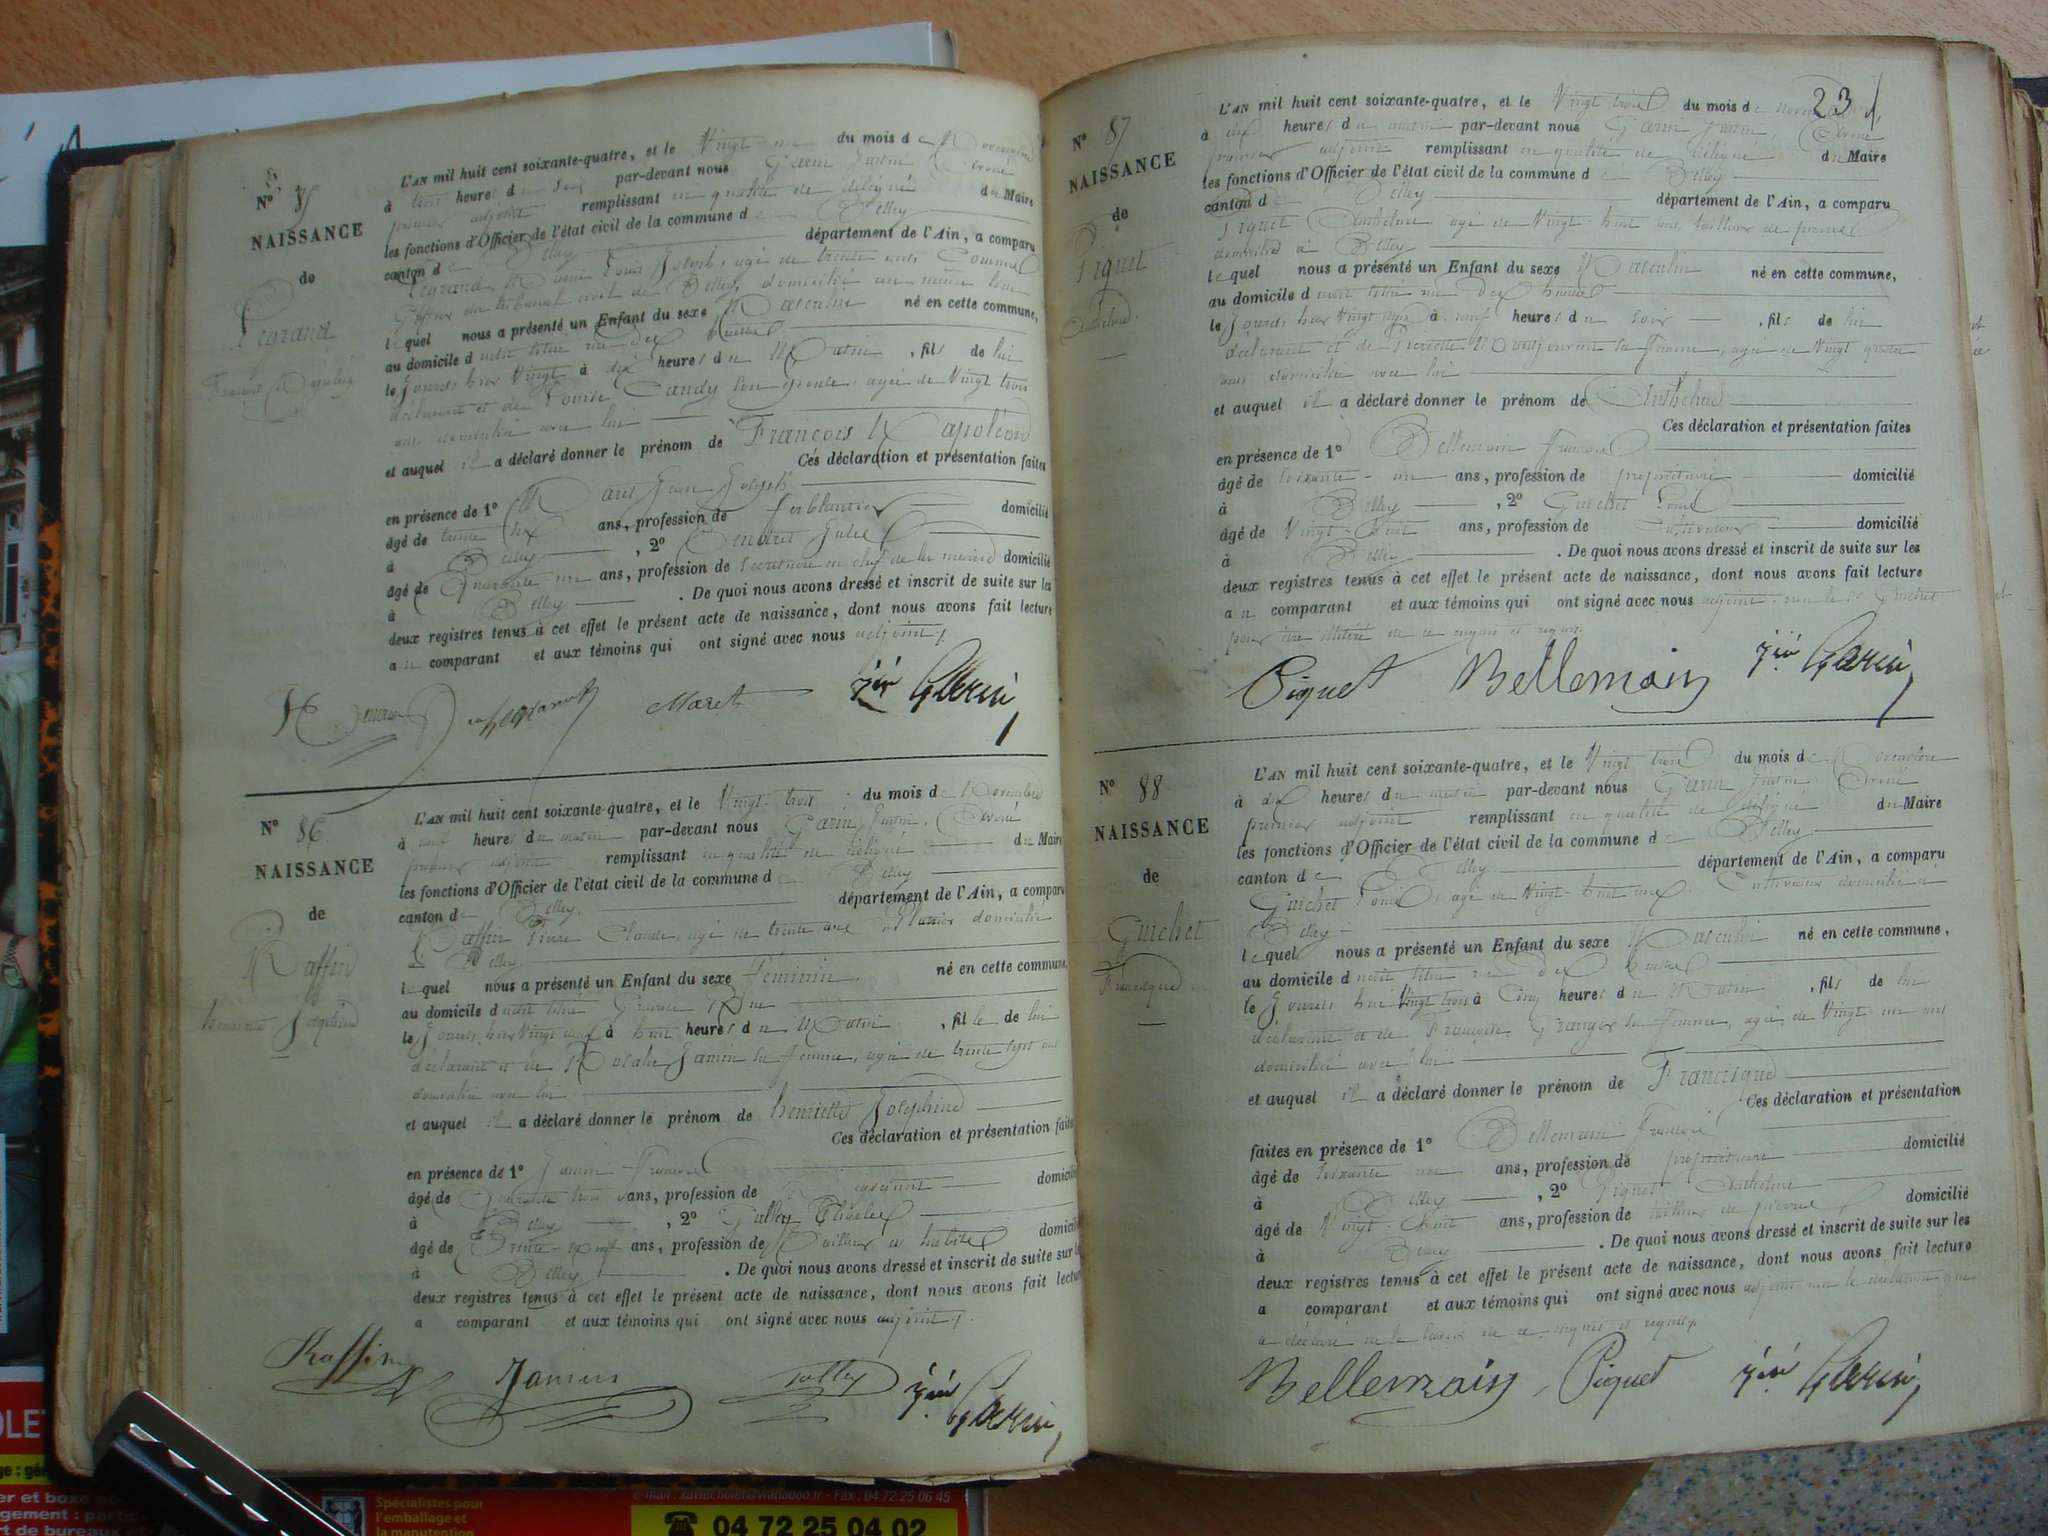 N° 85
NAISSANCE
de
Legrand
François Napoléon
L'AN mil huit cent soixante-quatre, et le Vingt-un du mois de Novembre
à trois heures du soir par-devant nous Garin Justin, Avoué
premier adjoint remplissant en qualité de délégué du Maire
les fonctions d'Officier de l'état civil de la commune de Belley
canton de Belley département de l'Ain, a comparu
Legrand, Marie Louis Joseph, agé de trente ans Commis
Greffier du tribunal civil de Belley, domicilié au même lieu
lequel nous a présenté un Enfant du sexe Masculin né en cette commune,
au domicile d
le Jourd'hier Vingt à dix heures du Matin, fils de lui
déclarant et de Louise Candy son épouse, agée de Vingt trois
ans domiciliée avec lui
et auquel il a déclaré donner le prénom de François Napoléon
Ces déclaration et présentation faites
en présence de 1° Maret Jean Joseph
âgé de trente six ans, profession de ferblantier domicilié
à Belley, 2° Julie
âgé de Quarante un ans, profession de Secrétaire en chef de la mairie domicilié
à Belley. De quoi nous avons dressé et inscrit de suite sur les
deux registres tenus à cet effet le présent acte de naissance, dont nous avons fait lecture
au comparant et aux témoins qui ont signé avec nous adjoint
Maret Jin Garin
N° 86
NAISSANCE
de
Raffin
henriette Joséphine
L'AN mil huit cent soixante-quatre, et le Vingt-trois du mois de Novembre
à neuf heures du matin par-devant nous Garin Justin, Avoué
premier adjoint remplissant en qualité de délégué du Maire
les fonctions d'Officier de l'état civil de la commune de Belley
canton de Belley département de l'Ain, a comparu
Raffin Pierre Claude, agé de trente ans Platrier domicilié
à Belley
lequel nous a présenté un Enfant du sexe féminin né en cette commune,
au domicile d Grande Rue
le Jourd'hier Vingt deux à huit heures du Matin, fille de lui
déclarant et de Rosalie Jamin sa femme, agée de trente sept ans
domiciliée avec lui
et auquel il a déclaré donner le prénom de henriette Joséphine
Ces déclaration et présentation faites
en présence de 1° Jamin François
âgé de Quarante trois ans, profession de domicilié
à Belley, 2° Gulley
âgé de Trente-neuf ans, profession de Tailleur d'habits domicilié
à Belley. De quoi nous avons dressé et inscrit de suite sur les
deux registres tenus à cet effet le présent acte de naissance, dont nous avons fait lecture
a comparant et aux témoins qui ont signé avec nous adjoint
Raffin Jamin Gulley Jin Garin
23
N° 87
NAISSANCE
de
Piquet
Anthelme
L'AN mil huit cent soixante-quatre, et le Vingt trois du mois de novembre,
à dix heures du matin par-devant nous Garin Justin, Avoué
premier adjoint remplissant en qualité de délégué du Maire
les fonctions d'Officier de l'état civil de la commune de Belley
canton de Belley département de l'Ain, a comparu
Piquet Anthelme agé de Vingt-huit ans, tailleur de pierres
domicilié à Belley
lequel nous a présenté un Enfant du sexe Masculin né en cette commune,
au domicile d
le Jourd'hier Vingt deux à neuf heures du soir, fils de lui
déclarant et de Pierrette sa femme, agée de Vingt quatre
ans domiciliée avec lui
et auquel il a déclaré donner le prénom de Anthelme
Ces déclaration et présentation faites
en présence de 1° Bellemain François
âgé de soixante-un ans, profession de propriétaire domicilié
à Belley, 2° Guichet Louis
âgé de Vingt-huit ans, profession de Cultivateur domicilié
à Belley. De quoi nous avons dressé et inscrit de suite sur les
deux registres tenus à cet effet le présent acte de naissance, dont nous avons fait lecture
au comparant et aux témoins qui ont signé avec nous adjoint non le Sr Guichet
pour être illitéré de ce enquis et requis.
Piquet Bellemain Jin Garin
N° 88
NAISSANCE
de
Guichet
Francisque
L'AN mil huit cent soixante-quatre, et le Vingt trois du mois de Novembre
à dix heures du matin par-devant nous Garin Justin Avoué
premier adjoint remplissant en qualité de délégué du Maire
les fonctions d'Officier de l'état civil de la commune de Belley
canton de Belley département de l'Ain, a comparu
Guichet Louis, agé de Vingt-huit ans, Cultivateur domicilié à
Belley
lequel nous a présenté un Enfant du sexe Masculin né en cette commune,
au domicile d
le Jourd'hui Vingt trois à Cinq heures du Matin, fils de lui
déclarant et de Françoise Granger sa femme, agée de Vingt un ans
domiciliée avec lui
et auquel il a déclaré donner le prénom de Francisque
Ces déclaration et présentation
faites en présence de 1° Bellemain François
âgé de soixante un ans, profession de propriétaire domicilié
à Belley, 2° Piquet Anthelme
âgé de Vingt-huit ans, profession de tailleur de pierres domicilié
à Belley. De quoi nous avons dressé et inscrit de suite sur les
deux registres tenus à cet effet le présent acte de naissance, dont nous avons fait lecture
a comparant et aux témoins qui ont signé avec nous adjoint non le déclarant qui
a déclaré ne le savoir de ce enquis et requis.
Bellemain Piquet Jin Garin
e-mail : xavier.cholet@wanadoo.fr - Fax : 04 72 25 06 45
Spécialistes pour
l'emballage et
la manutention
04 72 25 04 02